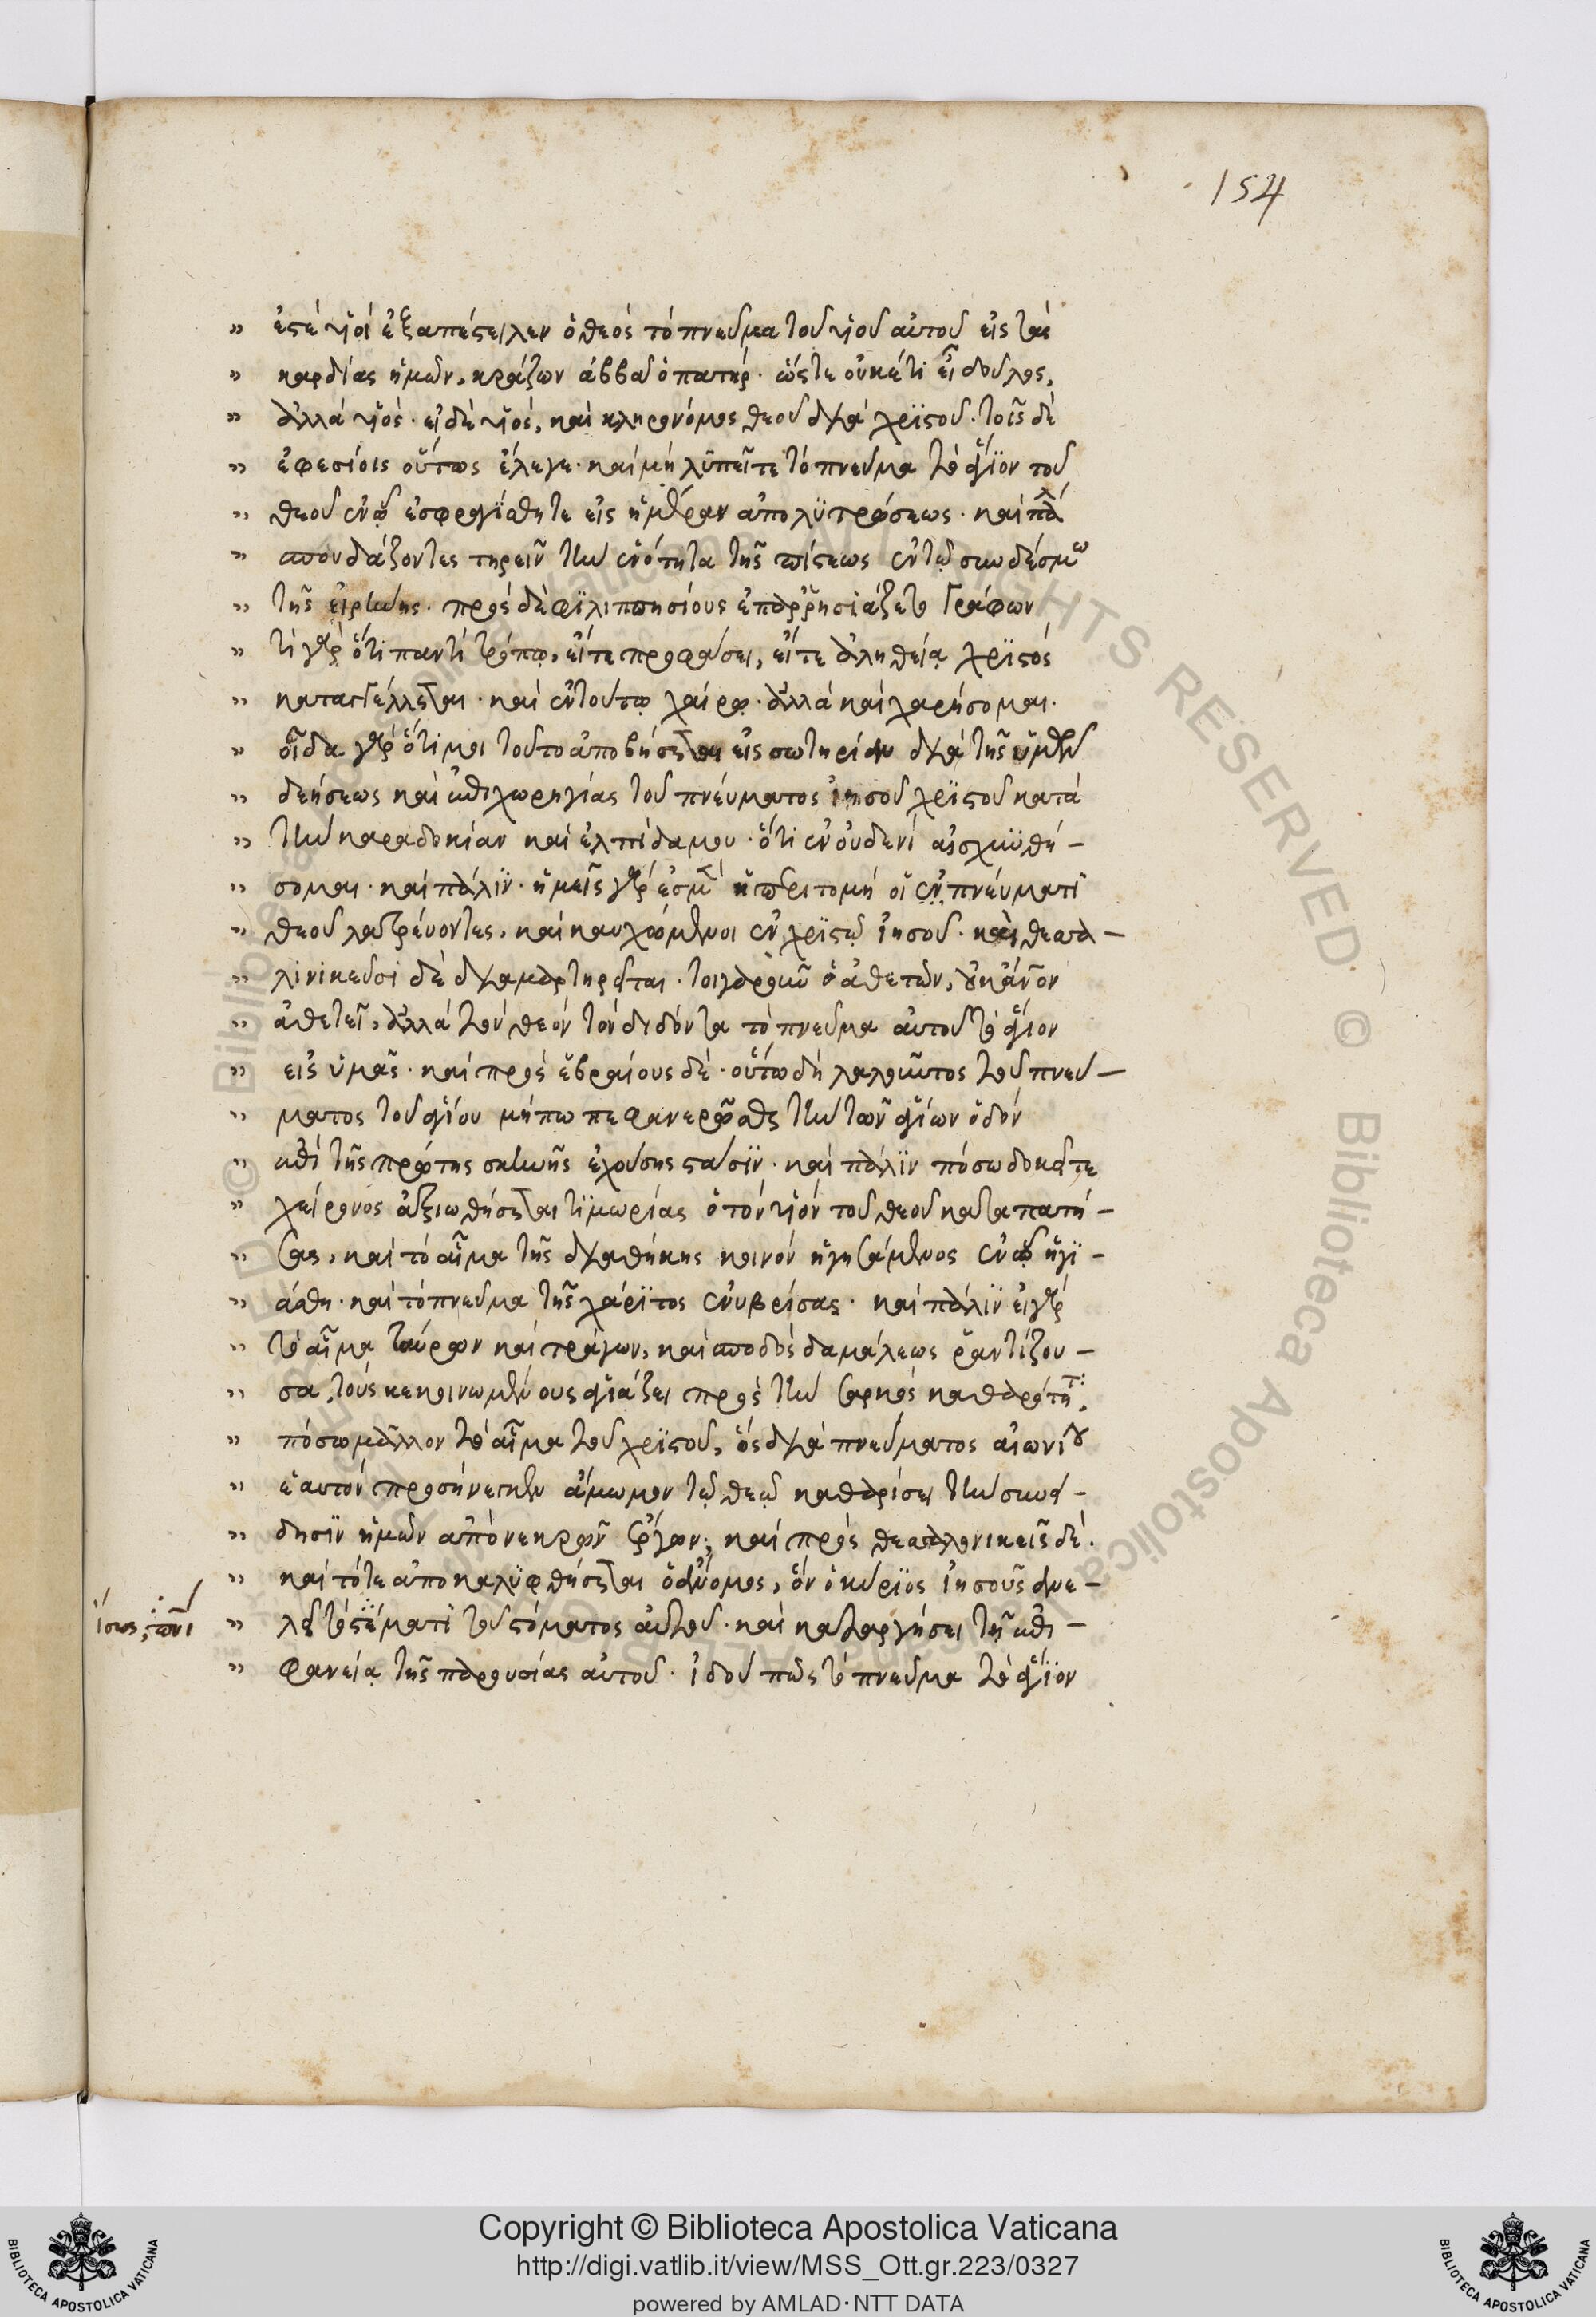 154
" ἐστέ υἱοί ἐξαπέστειλεν ὁ θεός τό πνεῦμα τοῦ υἱοῦ αὐτοῦ εἰς τάς
" καρδίας ἡμῶν, κράζων ἀββᾶ ὁ πατήρ · ὥστε οὐκέτι εἶ δοῦλος,
" ἀλλά υἱός · εἰ δὲ υἱός, καί κληρονόμος θεοῦ διά χριστοῦ · τοῖς δέ
" ἐφεσίοις οὕτως ἔλεγε · καί μή λυπεῖτε τό πνεῦμα τό ἅγϊον τοῦ
" θεοῦ ἐν ᾧ ἐσφραγίσθητε εἰς ἡμέραν ἀπολϋτρώσεως · καί πάλ
" σπουδάζοντες τηρεῖν τήν ἑνότητα τῆς πίστεως ἐν τῷ συνδέσμω
" τῆς εἰρήνης · πρός δὲ φϊλιππησίους ἐπαρρησιάζετο γράφων
" τί γάρ ὅτι παντί τρόπω, εἴτε προφάσει, εἴτε ἀληθεία χρϊστός
" καταγγέλλεται · καί ἐν τούτω χαίρω · ἀλλά καί χαρήσομαι ·
" οἶδα γάρ ὅτι μοι τοῦτο ἀποβήσεται εἰς σωτηρίαν διά τῆς ὑμῶν
" δεήσεως καί ἐπιχωρηγίας τοῦ πνεύματος ἰησοῦ χρϊστοῦ κατά
" τήν καραδοκίαν καί ἐλπίδα μου · ὅτι ἐν οὐδενί αἰσχυνθή -
" σομαι · καί πάλϊν · ἡμεῖς γάρ ἐσμέν ἡ περιτομή οἱ ἐν πνεύματι
" θεοῦ λατρεύοντες, καί καυχώμενοι ἐν χρϊστῷ ἰησοῦ · καί θεσσα -
" λινικεῦσι δέ διαμαρτηρεται · τοιγαροῦν ὁ ἀθετῶν, οὐκ ἄνον
" ἀθετεῖ, ἀλλά τόν θεόν τόν διδόντα τό πνεῦμα αὐτοῦ τό ἅγιον
" εἰς ὑμᾶς · καί πρός ἑβραίους δέ · οὕτω δή λαλοῦντος τοῦ πνεύ -
" ματος τοῦ ἁγίου μήπω πεφανερῶσθαι τήν τῶν ἁγίων ὁδόν
" ἐπί τῆς πρώτης σκηνῆς ἐχούσης στάσϊν · καί πάλϊν πόσω δοκεῖτε
" χείρονος ἀξιωθήσεται τϊμωρίας ὁ τόν υἱόν τοῦ θεοῦ καταπατή -
" σας, καί τό αἷμα τῆς διαθήκης κοινόν ἡγησάμενος ἐν ᾧ ἡγϊ -
" άσθη · καί τό πνεῦμα τῆς χάρϊτος ἐνυβρίσας · καί πάλϊν εἰ γάρ
" τό αἷμα ταύρων καί τράγων, καί σποδός δαμάλεως ῥαντίζου -
" σα, τούς κεκοινωμένους ἁγιάζει πρός τήν σαρκός καθαρότητ:
" πόσω μᾶλλον τό αἷμα τοῦ χρϊστοῦ, ὅς διά πνεύματος αἰωνίου
" ἑαυτόν προσήνεγκεν ἄμωμον τῷ θεῷ καθαρίσει τήν συνεί -
" δησϊν ἡμῶν ἀπό νεκρῶν ἔργων; καί πρός θεσσαλονικεῖς δέ ·
" καί τότε ἀποκαλϋφθήσεται ὁ ἄνομος, ὅν ὁ κύρϊος ἰησοῦς ἀνε -
" λεῖ τό στέματι τοῦ στόματος αὐτοῦ · καί καταργήσει τῆ ἐπι -
" φανεία τῆς παρουσίας αὐτοῦ · ἰδού πῶς τό πνεῦμα τό ἅγϊον